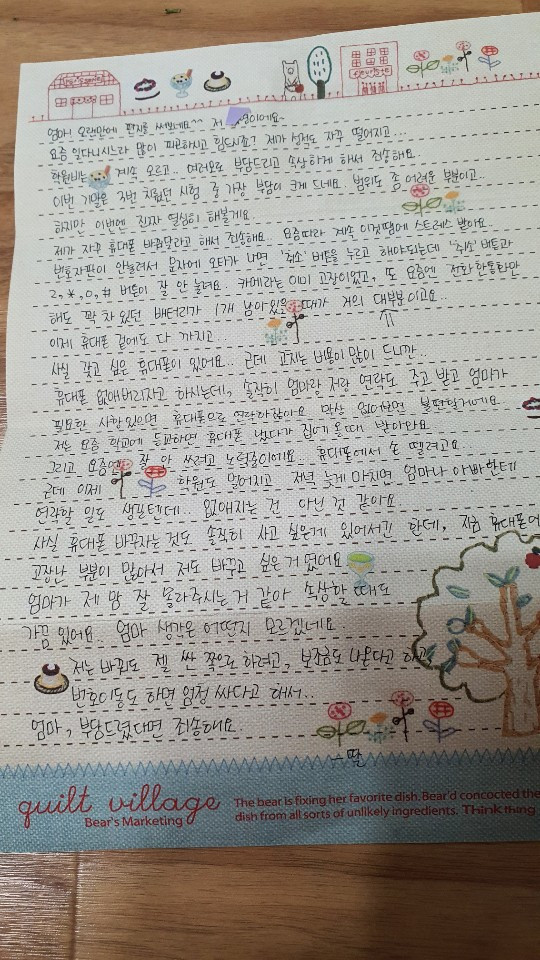 엄마! 오랜만에 편지를 써보네요^^ 저 영이에요~
요즘 일다니시느라 많이 피곤하시고 힘드시죠? 제가 성적도 자꾸 떨어지고...
학원비는 계속 오르고.. 여러모로 부담드리고 속상하게 해서 죄송해요.
이번 기말은 3번 치뤘던 시험 중 가장 부담이 크게 드네요. 범위도 좀 어려운 부분이고..
하지만 이번엔 진짜 열심히 해볼게요.
제가 자꾸 휴대폰 바꿔달라고 해서 죄송해요.. 요즘따라 계속 이것땜에 스트레스 받아요.
번호자판이 안눌려서 문자에 오타가 나면 '취소' 버튼을 누르고 해야되는데 '취소' 버튼과
2, *, 0, # 버튼이 잘 안 눌려요. 카메라는 이미 고장이었고, 또 요즘엔 전화한통화만
해도 꽉 차있던 배터리가 1개 남아있을 때가 거의 대부분이고요..
이제 휴대폰 겉에도 다 까지고...
사실 갖고 싶은 휴대폰이 있어요.. 근데 고치는 비용이 많이 드니깐..
휴대폰 없애버리자고 하시는데, 솔직히 엄마랑 저랑 연락도 주고 받고 엄마가
필요한 사람 있으면 휴대폰으로 연락하잖아요 막상 없어보면 불편할거에요.
저는 요즘 학교에 등교하면 휴대폰 냈다가 집에 올때 받아와요
그리고 요즘엔 잘 안 쓰려고 노력중이에요.. 휴대폰에서 손 뗄려고요
근데 이제 학원도 멀어지고 저녁 늦게 마치면 엄마나 아빠한테
연락할 일도 생길텐데.. 없애지는 건 아닌 것 같아요
사실 휴대폰 바꾸자는 것도 솔직히 사고 싶은게 있어서긴 한데, 지금 휴대폰에
고장난 부분이 많아서 저도 바꾸고 싶은 거 였어요
엄마가 제 맘 잘 몰라주시는 거 같아 속상할 때도
가끔 있어요. 엄마 생각은 어떤지 모르겠네요.
저는 바꿔도 젤 싼 쪽으로 하려고, 보조금도 나온다고 하고
번호이동도 하면 엄청 싸다고 해서..
엄마, 부담드렸다면 죄송해요.
-딸
quilt village
Bear's Marketing
The bear is fixing her favorite dish. Bear'd concocted the
dish from all sorts of unlikely ingredients. Think thing